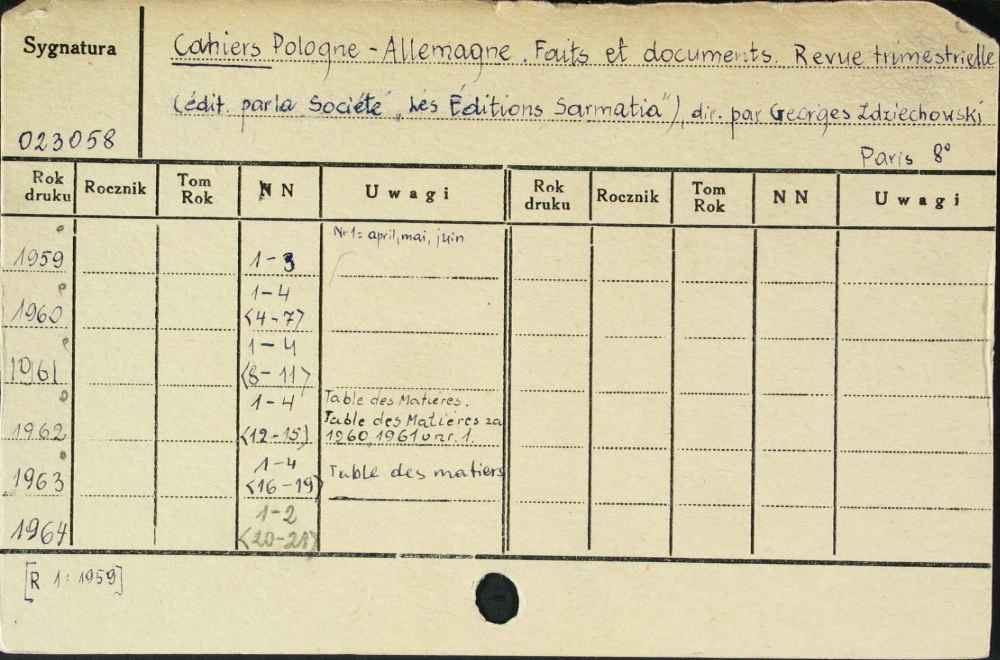 Sygnatura
Cahiers Pologne - Allemagne. Faits et documents. Revue trimestrielle
(édit. par la Société "Les Éditions Sarmatia"), dir. par Georges Zdziechowski
023058
Paris 8°
Rok druku Rocznik Tom Rok NN Uwagi Rok druku Rocznik Tom Rok NN Uwagi
Nr 1: april, mai, juin
1959 1-3
1-4
1960 <4-7>
1-4
1961 <8-11>
1-4 Table des Matieres.
Table des Matières za
1962 <12-15> 1960, 1961 v nr. 1.
1-4 Table des matiers
1963 <16-19>
1-2
1964 <20-21>
[R 1: 1959]